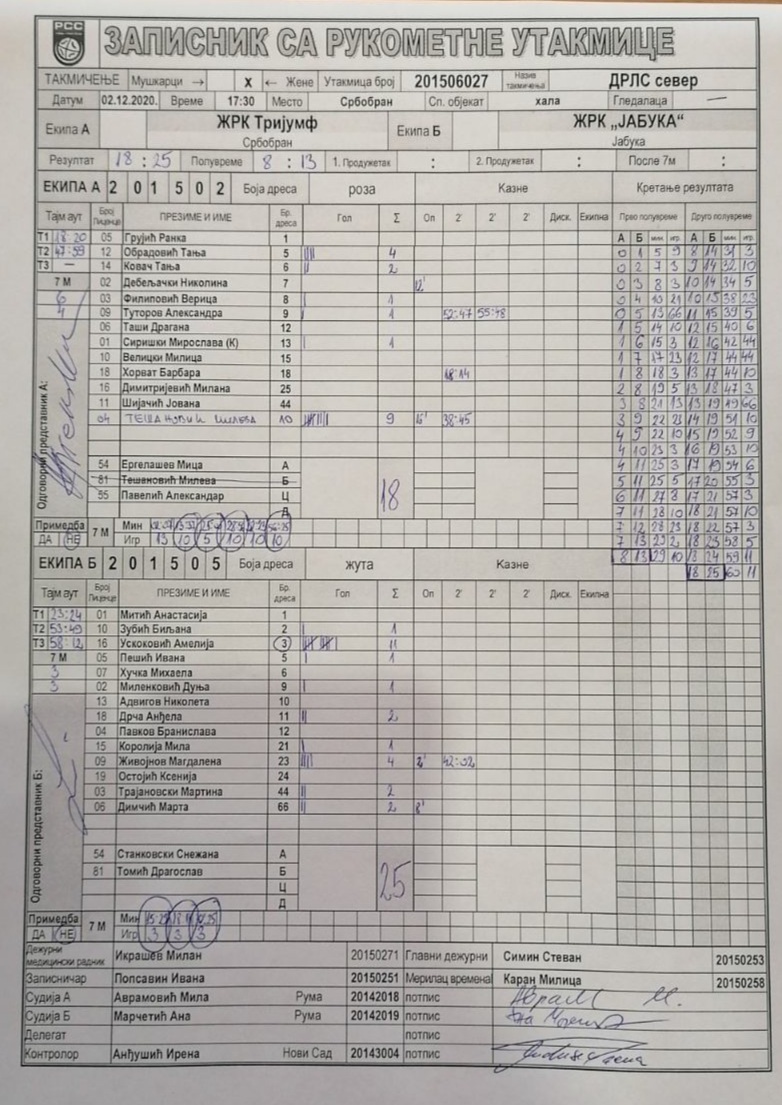 РСС
ЗАПИСНИК СА РУКОМЕТНЕ УТАКМИЦЕ
ТАКМИЧЕЊЕ Мушкарци → X ← Жене Утакмица број 201506027 Назив такмичења ДРЛС север
Датум 02.12.2020. Време 17:30 Место Србобран Сп. објекат хала Гледалаца —
Екипа А ЖРК Тријумф Екипа Б ЖРК „ЈАБУКА“
Србобран Јабука
Резултат 18 : 25 Полувреме 8 : 13 1. Продужетак : 2. Продужетак : После 7м :
ЕКИПА А 2 0 1 5 0 2 Боја дреса роза Казне Кретање резултата
Тајм аут Број Лиценце ПРЕЗИМЕ И ИМЕ Бр. дреса Гол Σ Оп 2' 2' 2' Диск. Екипна Прво полувреме Друго полувреме
А Б мин. игр. А Б мин. игр.
Т1 18:20 05 Грујић Ранка 1
Т2 47:59 12 Обрадовић Тања 5 4
Т3 — 14 Ковач Тања 6 2
7 М 02 Дебељачки Николина 7 12'
6 03 Филиповић Верица 8 1
4 09 Туторов Александра 9 1 52:47 55:48
06 Таши Драгана 12
01 Сиришки Мирослава (К) 13 1
10 Велицки Милица 15
18 Хорват Барбара 18 18:14
16 Димитријевић Милана 25
11 Шијачић Јована 44
04 ТЕШАНОВИЋ МИЛЕВА 10 9 15' 38:45
54 Ергелашев Мица А
81 Тешановић Милева Б
55 Павелић Александар Ц
Д
18
Одговорни представник А:
0 1 5 9 8 14 31 3
0 2 7 3 9 14 32 10
0 3 8 3 10 14 34 5
0 4 10 21 10 15 38 23
0 5 13 66 11 15 39 5
1 5 14 10 12 15 40 6
1 6 15 3 12 16 42 44
1 7 17 23 12 17 44 44
1 8 18 3 13 17 44 10
2 8 19 5 13 18 47 3
3 8 21 13 13 19 49 66
3 9 22 23 14 19 51 10
4 9 22 10 15 19 52 9
4 10 23 3 16 19 53 10
4 11 25 3 17 19 54 6
5 11 25 5 17 20 55 3
6 11 27 8 17 21 57 3
7 11 28 10 18 21 57 10
7 12 28 23 18 22 57 3
7 13 29 2 18 23 58 5
8 13 29 10 18 24 59 11
18 25 60 11
Примедба 7 М Мин
ДА НЕ Игр 13 10 5 10 10 10
ЕКИПА Б 2 0 1 5 0 5 Боја дреса жута Казне
Тајм аут Број Лиценце ПРЕЗИМЕ И ИМЕ Бр. дреса Гол Σ Оп 2' 2' 2' Диск. Екипна
Т1 23:24 01 Митић Анастасија 1
Т2 53:49 10 Зубић Биљана 2 1
Т3 58:12 16 Ускоковић Амелија 3 11
7 М 05 Пешић Ивана 5 1
3 07 Хучка Михаела 6
3 02 Миленковић Дуња 9 1
13 Адвигов Николета 10
18 Дрча Анђела 11 2
04 Павков Бранислава 12
15 Королија Мила 21 1
09 Живојнов Магдалена 23 4 2' 42:02
19 Остојић Ксенија 24
03 Трајановски Мартина 44 2
06 Димчић Марта 66 2 8'
54 Станковски Снежана А
81 Томић Драгослав Б
Ц
Д
25
Одговорни представник Б:
Примедба 7 М Мин
ДА НЕ Игр 3 3 3
Дежурни медицински радник Икрашев Милан 20150271 Главни дежурни Симин Стеван 20150253
Записничар Попсавин Ивана 20150251 Мерилац времена Каран Милица 20150258
Судија А Аврамовић Мила Рума 20142018 потпис
Судија Б Марчетић Ана Рума 20142019 потпис
Делегат потпис
Контролор Анђушић Ирена Нови Сад 20143004 потпис